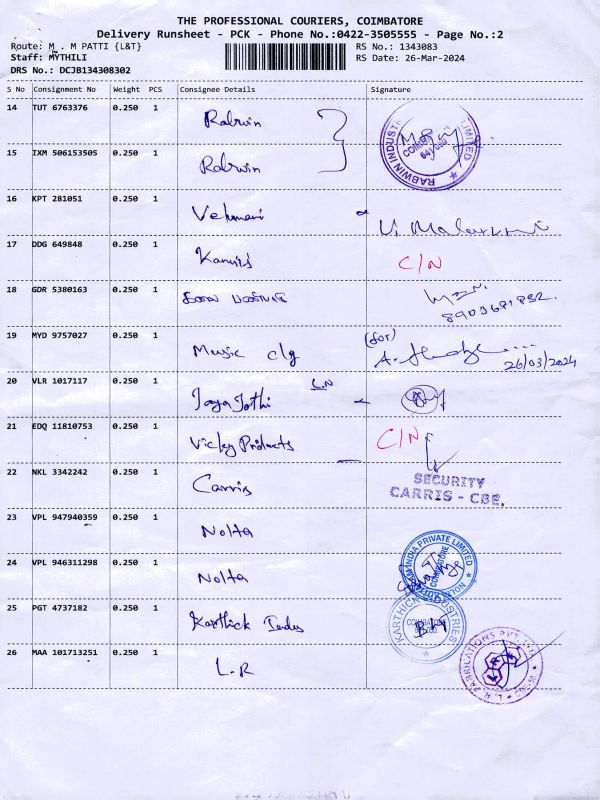 THE PROFESSIONAL COURIERS, COIMBATORE
Delivery Runsheet - PCK - Phone No.:0422-3505555 - Page No.:2
Route: M . M PATTI {L&T} RS No.: 1343083
Staff: MYTHILI RS Date: 26-Mar-2024
DRS No.: DCJB134308302
S No Consignment No Weight PCS Consignee Details Signature
14 TUT 6763376 0.250 1 Rabwin
15 IXM 506153505 0.250 1 Rabwin
RABWIN INDUSTR LIMITED
16 KPT 281051 0.250 1 Velumani
17 DDG 649848 0.250 1 C/N
18 GDR 5380163 0.250 1
8903681832.
19 MYD 9757027 0.250 1 Music clg (for)
26/03/2024
20 VLR 1017117 0.250 1 Jaya Jothi
21 EDQ 11810753 0.250 1 Vicky Products C/N
22 NKL 3342242 0.250 1 Carris SECURITY
CARRIS - CBE.
23 VPL 947940359 0.250 1 Nolta
24 VPL 946311298 0.250 1 Nolta INDIA PRIVATE LIMITED
COIMBATORE
25 PGT 4737182 0.250 1 Karthick KARTHICK INDUSTRIES
26 MAA 101713251 0.250 1 L.R
FABRICATIONS PVT